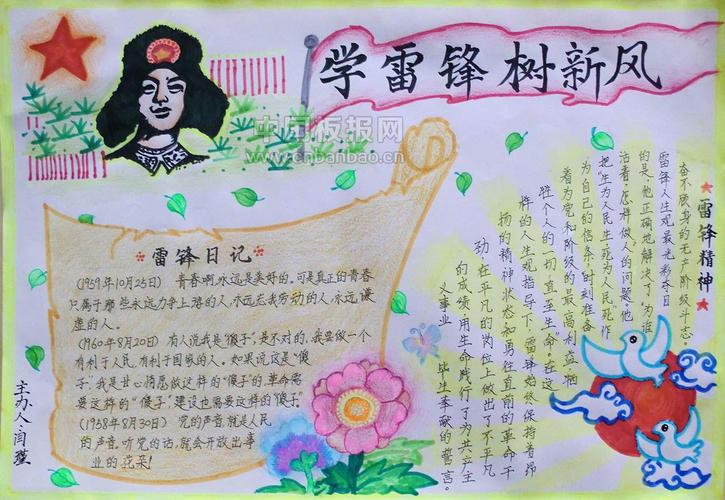 学雷锋树新风
中国板报网
cnbanbao.cn
雷锋日记
(1959年10月25日) 青春啊,永远是美好的。可是真正的青春
只属于那些永远力争上游的人,永远忘我劳动的人,永远谦
虚的人。
(1960年8月20日) 有人说我是"傻子"是不对的,我要做一个
有利于人民,有利于国家的人。如果说这是"傻
子",我是甘心情愿做这样的"傻子"的,革命需
要这样的"傻子",建设也需要这样的"傻子"
(1958年8月30日) 党的声音,就是人民
的声音,听党的话,就会开放出事
业的花朵!
★雷锋精神★
奋不顾身的无产阶级斗志。
雷锋人生观最光彩夺目
的是,他正确地解决了"为谁
活着,怎样做人"的问题。他
把"生为人民生,死为人民死"作
为自己的信条,"时刻准备
着为党和阶级的最高利益,牺
牲个人的一切,直至生命。"在这
样的人生观指导下,雷锋始终保持着昂
扬的精神状态和勇往直前的革命干
劲,在平凡的岗位上做出了不平凡
的成绩,用生命践行了"为共产主
义事业 毕生奉献"的誓言。
主办人:闫